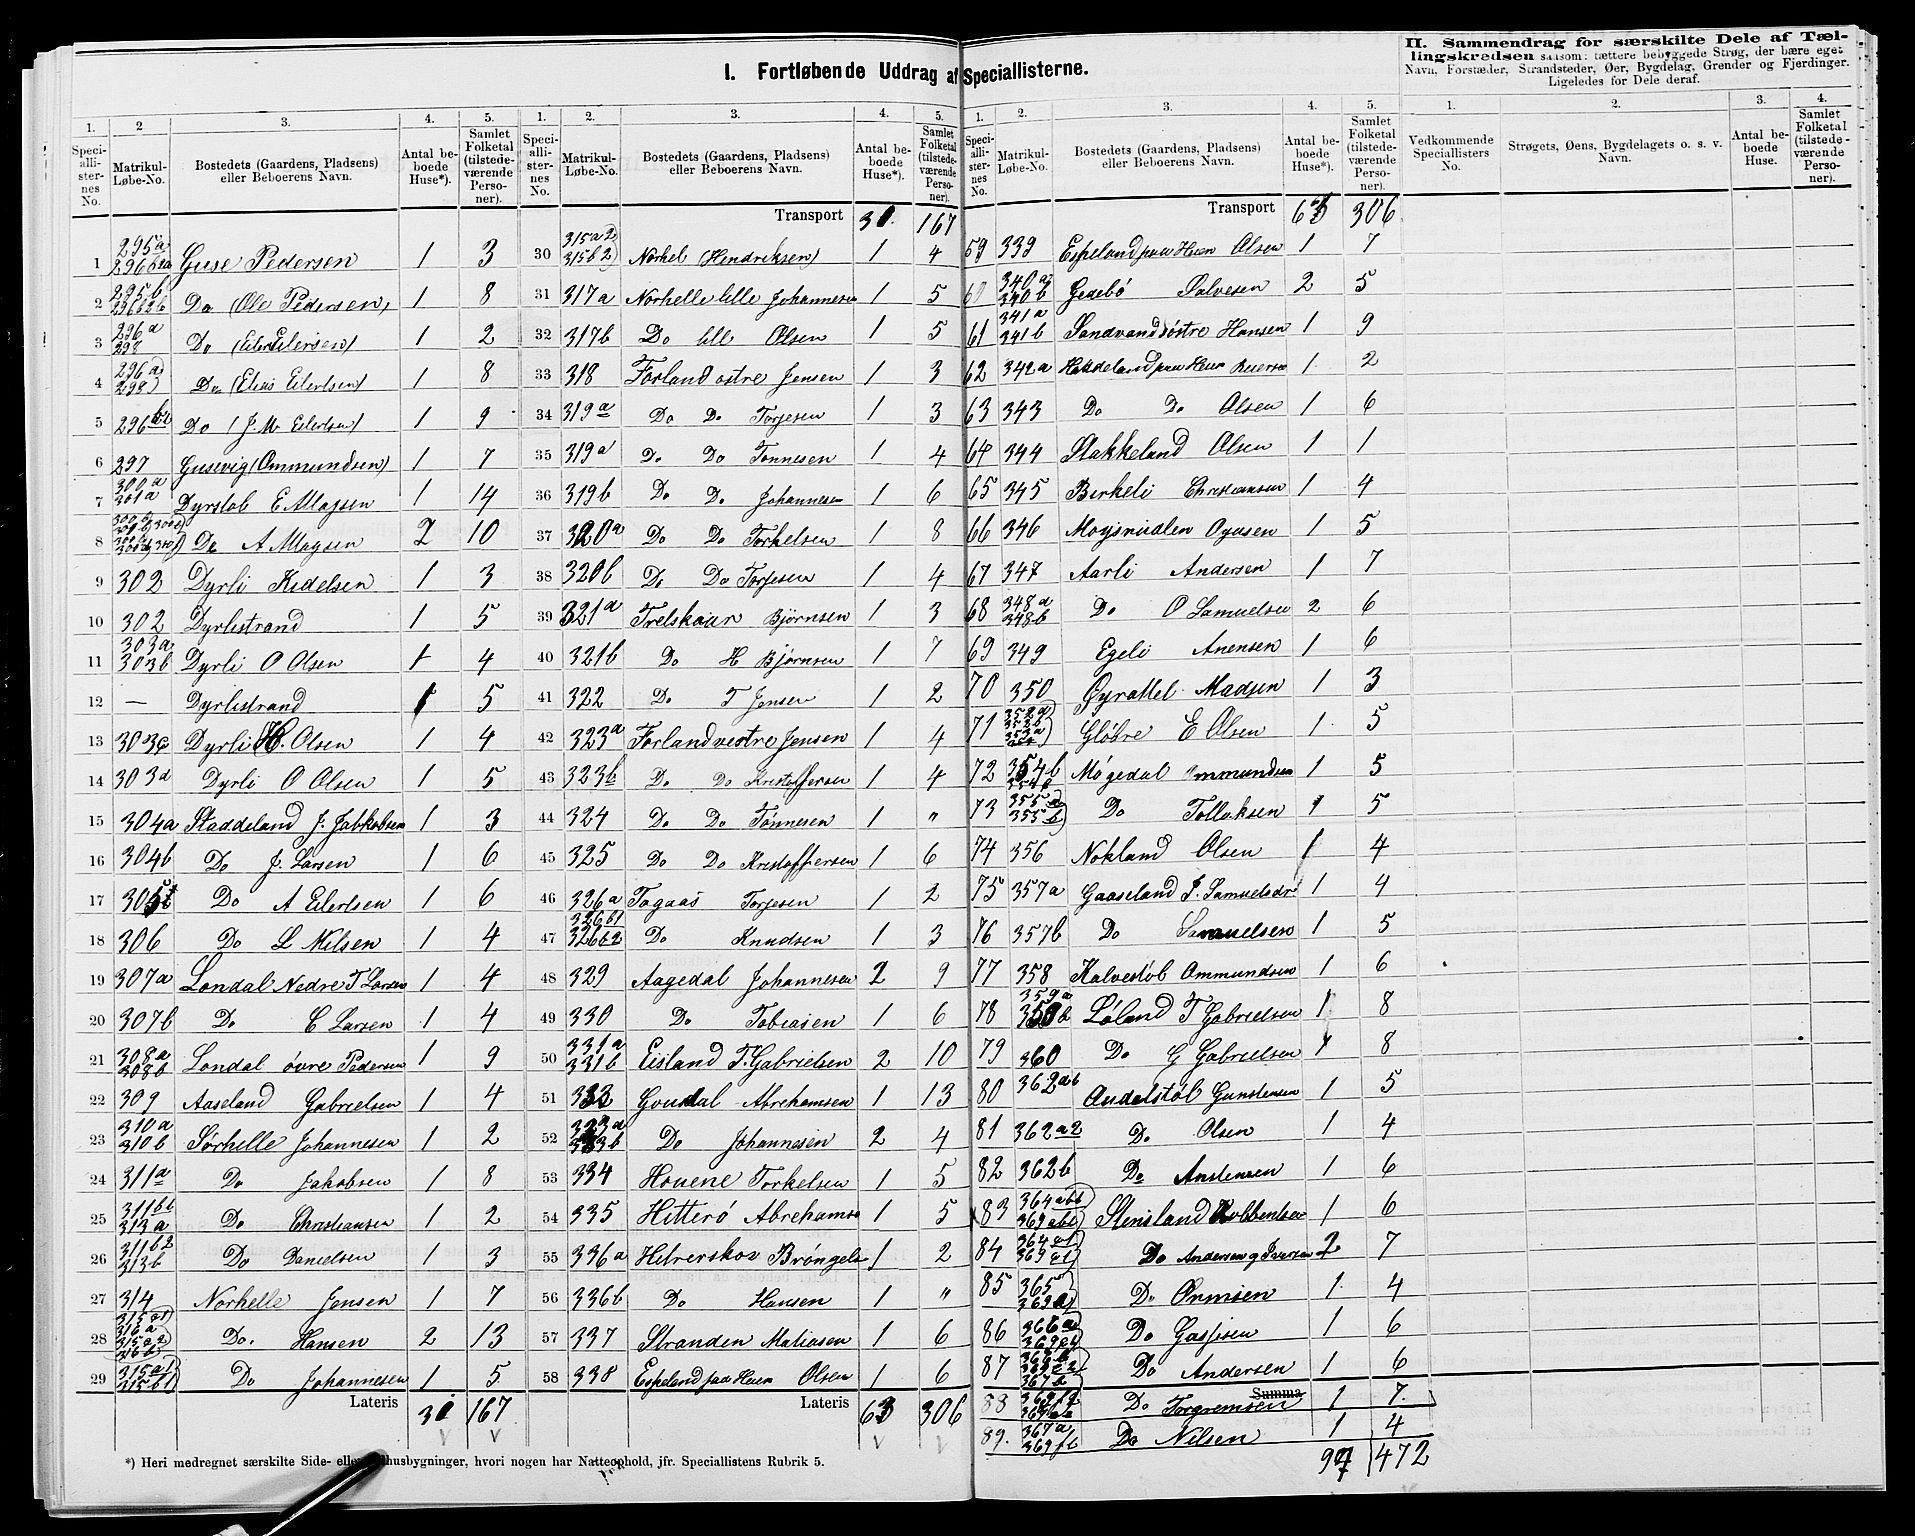 I. Fortløbende Uddrag af Speciallisterne.
II. Sammendrag for særskilte Dele af Tællingskredsen saasom: tættere bebyggede Strøg, der bære eget Navn, Forstæder, Strandsteder, Øer, Bygdelag, Grender og Fjerdinger. Ligeledes for Dele deraf.
1. 2 3. 4. 5.
Speciallisternes No. Matrikul-Løbe-No. Bostedets (Gaardens, Pladsens) eller Beboerens Navn. Antal beboede Huse*). Samlet Folketal (tilstedeværende Personer).
1 295a 296b2a Guse Pedersen 1 3
2 295b 296b2b Do (Ole Pedersen) 1 8
3 296a 298 Do (Eiler Eilersen) 1 2
4 296a 298) Do (Elias Eilertsen) 1 8
5 296 Do (J. M. Eilertsen) 1 9
6 297 Gusevig (Ommundsen) 1 7
7 300a 301a Dyrstøb E Magsen 1 14
8 Do A Magsen 2 10
9 302 Dyrli Kedelsen 1 3
10 302 Dyrlistrand 1 5
11 303a 303b Dyrli O Olsen 1 4
12 — Dyrlistrand 1 5
13 303c Dyrli H. Olsen 1 4
14 303d Dyrli O Olsen 1 5
15 304a Staddeland J. Jabkobsen 1 3
16 304b Do J. Larsen 1 6
17 305 Do A Eilertsen 1 6
18 306 Do L Nilsen 1 4
19 307a Londal Nedre T Larsen 1 4
20 307b Do C Larsen 1 4
21 308a 308b Londal øvre Pedersen 1 9
22 309 Aaseland Gabrielsen 1 4
23 310a 310b Sørhelle Johannesen 1 2
24 311a Do Jakobsen 1 8
25 311b1 313a Do Christiansen 1 2
26 311b2 313b Do Danielsen 1 3
27 314 Norhelle Jensen 1 7
28 315a1) 316a 315a2) 316b) Do. Hansen 2 13
29 315a1) 315b1) Do Johannesen 1 5
Lateris 31 167
1. 2. 3. 4. 5.
Speciallisternes No. Matrikul-Løbe-No. Bostedets (Gaardens, Pladsens) eller Beboerens Navn. Antal beboede Huse*). Samlet Folketal (tilstedeværende Personer).
Transport 31 167
30 315a2 315b2) Norhel (Hendriksen) 1 4
31 317a Norhelle lille Johannesen 1 5
32 317b Do lill Olsen 1 5
33 318 Forland ostre Jensen 1 3
34 319a Do Do Torjesen 1 3
35 319a Do Do Tønnesen 1 4
36 319b Do Do Johannesen 1 6
37 320a Do Do Torkelsen 1 8
38 320b Do Do Torjesen 1 4
39 321a Trelskaar Bjørnsen 1 3
40 321b Do H Bjørnsen 1 7
41 322 Do T Jensen 1 2
42 323a Forland vestre Jensen 1 4
43 323b Do Do Kristoffersen 1 4
44 324 Do Do Tønnesen 1 "
45 325 Do Do Kristoffersen 1 6
46 326a Tagaas Torjesen 1 2
47 326b1 326b2 Do Knudsen 1 3
48 329 Aagedal Johannesen 2 9
49 330 Do Tobiasen 1 6
50 331a 331b Eisland T. Gabrielsen 2 10
51 332 Goudal Abrehamsen 1 13
52 333a 333b Do Johannesen 2 4
53 334 Houene Torkelsen 1 5
54 335 Hitterö Abrehamsen 1 5
55 336a Hitrerskov Brøngels 1 2
56 336b Do Hansen 1 "
57 337 Stranden Matiasen 1 6
58 338 Espeland paa Heien Olsen 1 6
Lateris 63 306
1. 2. 3. 4. 5.
Speciallisternes No. Matrikul-Løbe-No. Bostedets (Gaardens, Pladsens) eller Beboerens Navn. Antal beboede Huse*). Samlet Folketal (tilstedeværende Personer).
Transport 63 306
59 339 Espeland paa Heien Olsen 1 7
60 340a 340b Gedebö Salvesen 2 5
61 341a 341b Sandvand østre Hansen 1 9
62 342a paa Heien 1 2
63 343 Do Do Olsen 1 6
64 344 Stakkeland Olsen 1 1
65 345 Birkeli Christiansen 1 4
66 346 1 5
67 347 Aarli Andersen 1 7
68 348a 348b Do O Samuelsen 2 6
69 349 Egeli Anensen 1 6
70 350 Madsen 1 3
71 352a 352b 353a Gløbre E Olsen 1 5
72 354b Møgedal Ommundsen 1 5
73 355a 355b Do Tollaksen 1 5
74 356 Nokland Olsen 1 4
75 357a Gaaseland J. Samuelsdr. 1 4
76 357b Do Samuelsen 1 5
77 358 Kalvestöl Ommundsen 1 6
78 359a 359b Løland T Gabrielsen 1 8
79 360 Do G Gabrielsen 1 8
80 362ab Audalstøl Gunstensen 1 5
81 362a2 Do Olsen 1 4
82 362b Do Anstensen 1 6
83 364abb) Stensland 1 6
84 364a1) Do Andersen og Iversen 2 7
85 365 369 Do Ormsen 1 4
86 366a Do Gassisen 1 6
87 367b Do Andersen 1 6
88 Do Torgremsen 1 7
Summa
89. 367a 369 Do Nilsen 1 4
94 472
1. 2. 3. 4.
Vedkommende Speciallisters No. Strøgets, Øens, Bygdelagets o. s. v. Navn. Antal beboede Huse. Samlet Folketal (tilstedeværende Personer).
*) Heri medregnet særskilte Side- eller Udhusbygninger, hvori nogen har Natteophold, jfr. Speciallistens Rubrik 5.